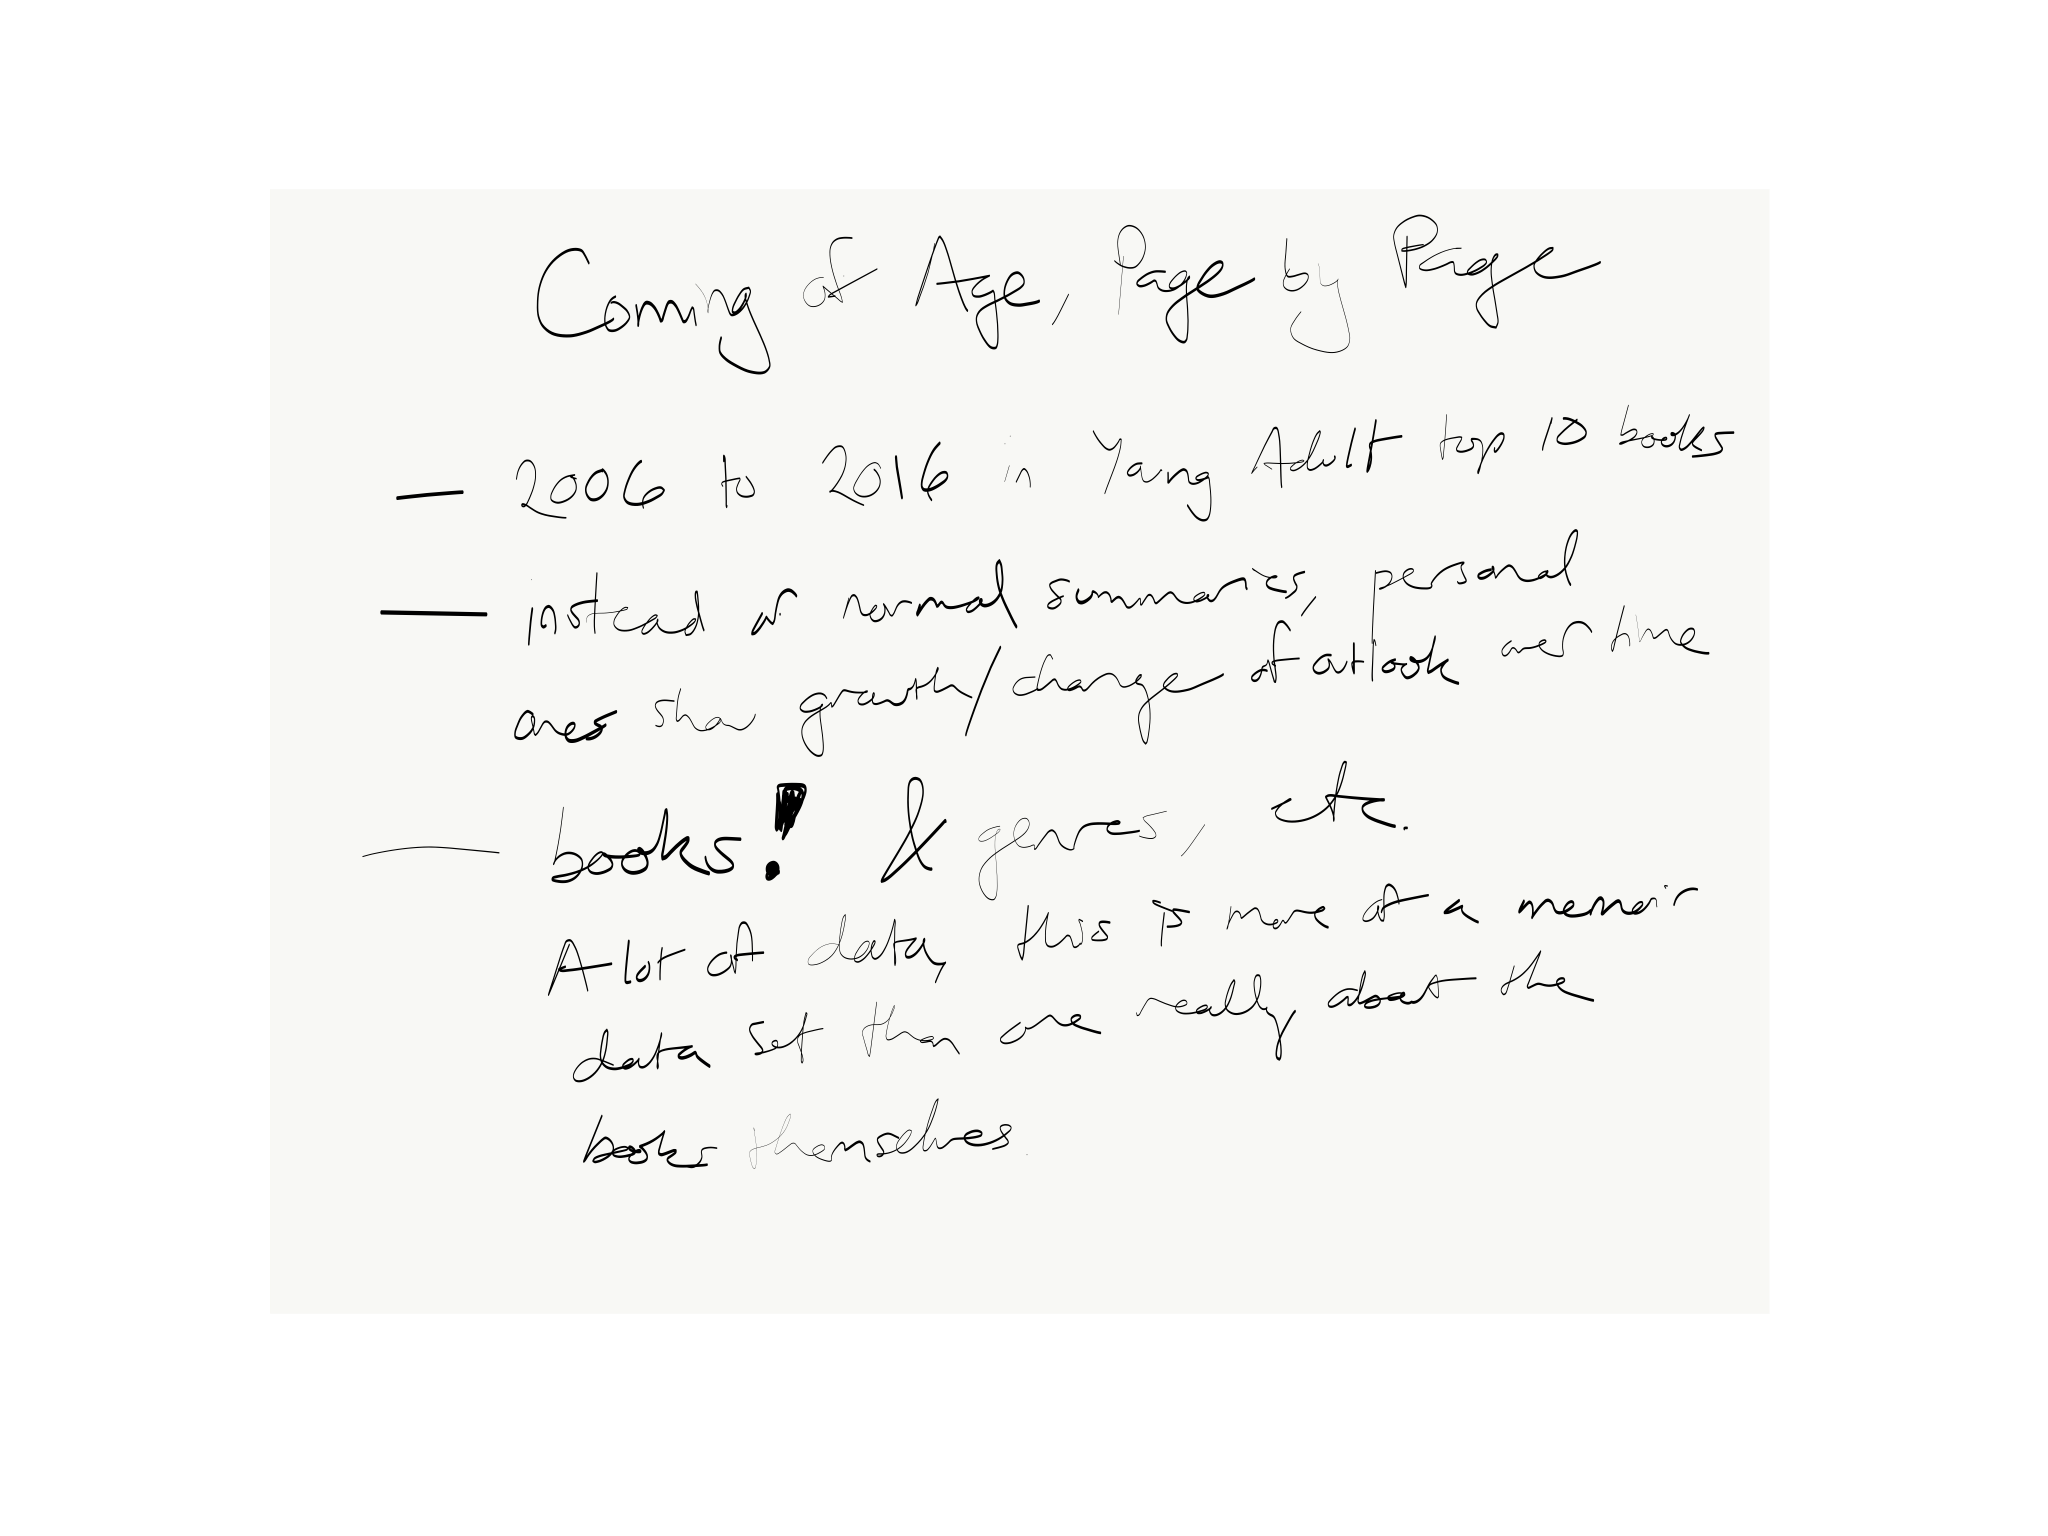 Coming of Age, Page by Page
— 2006 to 2016 in Young Adult top 10 books
— instead of normal summaries, personal
ones show growth/change of outlook over time
— books! & genres, etc.
A lot of data, this is more of a memoir
data set than one really about the
books themselves.